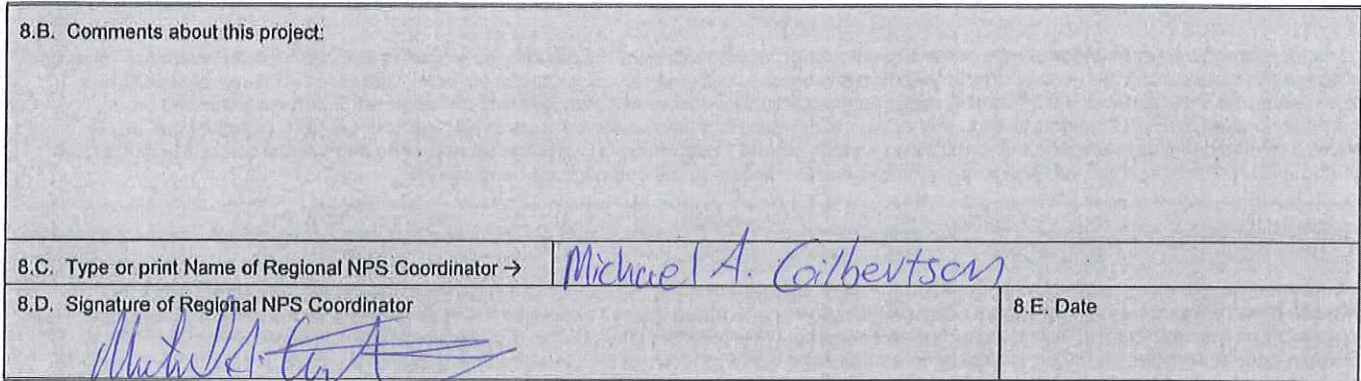 8.B. Comments about this project:
8.C. Type or print Name of Regional NPS Coordinator → Michael A. Gilbertson
8.D. Signature of Regional NPS Coordinator
8.E. Date